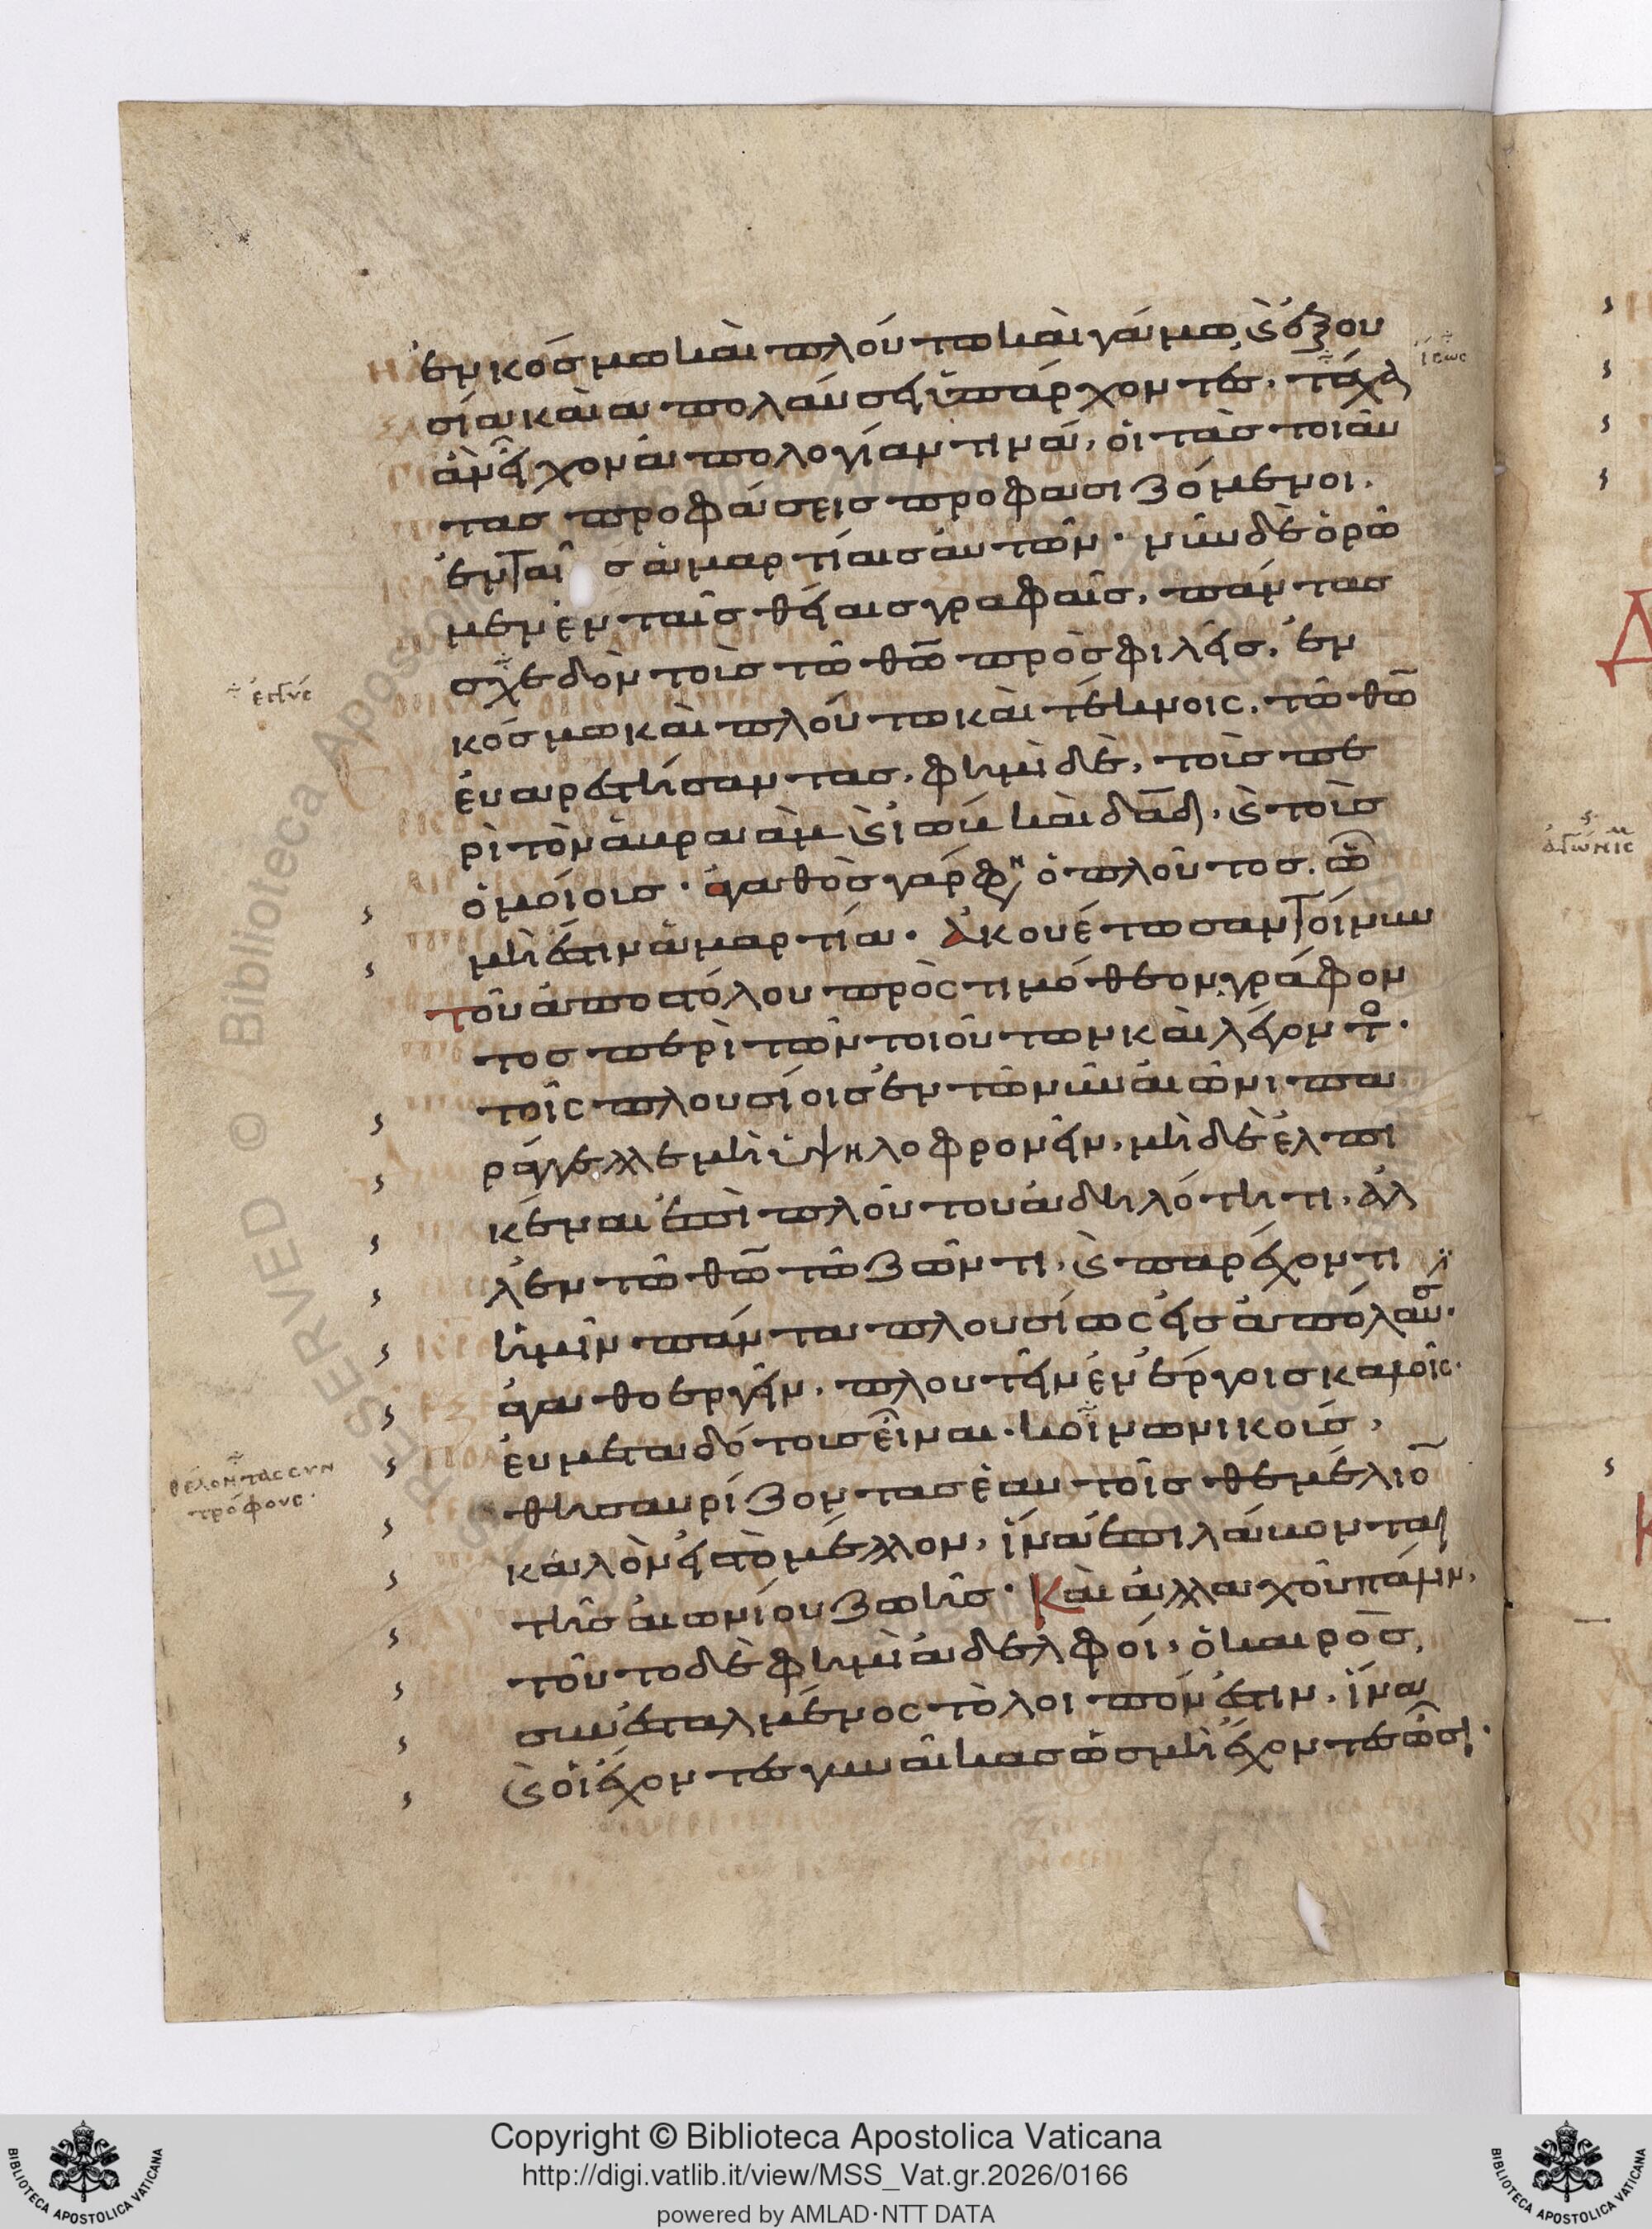 ἐν κόσμω καὶ πλούτω καὶ γάμω, ϛ ἐξου
σία καὶ ἀπολαύσει ὑπάρχοντες. τάχα
ἂν εἶχον ἀπολογίαν τινά, οἱ τὰς τοιαύ
τας προφάσεις προφασιζόμενοι.
ἐν ταῖς ἁμαρτίαις αὐτῶν· νῦν δὲ ὁρῶ
μεν ἐν ταῖς θείαις γραφαῖς, πάντας
σχεδὸν τοὺς τῶ θῶ προσφιλεῖς, ἐν
κόσμω καὶ πλούτω καὶ τέκνοις, τῶ θῶ
εὐαρεστήσαντας. φημὶ δὲ, τοὺς πε
ρὶ τὸν ἀβραὰμ ϛ ἰὼβ καὶ δᾱδ, ϛ τοὺς
ὁμοίους· ἀγαθὸς γάρ φη ὁ πλοῦτος. ὧ
μή ἐστιν ἁμαρτία· ἀκουέτωσαν τοίνυν
τοῦ ἀποστόλου πρὸς τιμόθεον γράφον
τος περὶ τῶν τοιούτων καὶ λέγοντο.
τοῖς πλουσίοις ἐν τῶ νῦν αἰῶνι πα
ράγγελλε μὴ ὑψηλοφρονεῖν, μὴ δὲ ἐλπι
κέναι ἐπὶ πλούτου ἀδηλότητι, ἀλ
λ' ἐν τῶ θῶ τῶ ζῶντι, ϛ παρέχοντι
ἡμῖν πάντα πλουσίως εἰς ἀπόλαυ.
ἀγαθοεργεῖν, πλουτεῖν ἐν ἔργοις καλοῖς.
εὐμεταδότους εἶναι. κοινωνικούς,
θησαυρίζοντας ἑαυτοῖς θεμέλιο
καλὸν εἰς τὸ μέλλον, ἵνα ἐπιλάβονται
τῆς αἰωνίου ζωῆς· Καὶ ἀλλαχοῦ πάλιν,
τοῦτο δέ φημὶ ἀδελφοί, ὁ καιρὸς,
συνεσταλμένος τὸ λοιπόν ἐστιν, ἵνα
ϛ οἱ ἔχοντες γυναῖκας ὡς μὴ ἔχοντες ὦσι·
ἴσως
θέλοντας συν
τρόφους·
Copyright © Biblioteca Apostolica Vaticana
http://digi.vatlib.it/view/MSS_Vat.gr.2026/0166
powered by AMLAD·NTT DATA
BIBLIOTECA APOSTOLICA VATICANA
BIBLIOTECA APOSTOLICA VATICANA